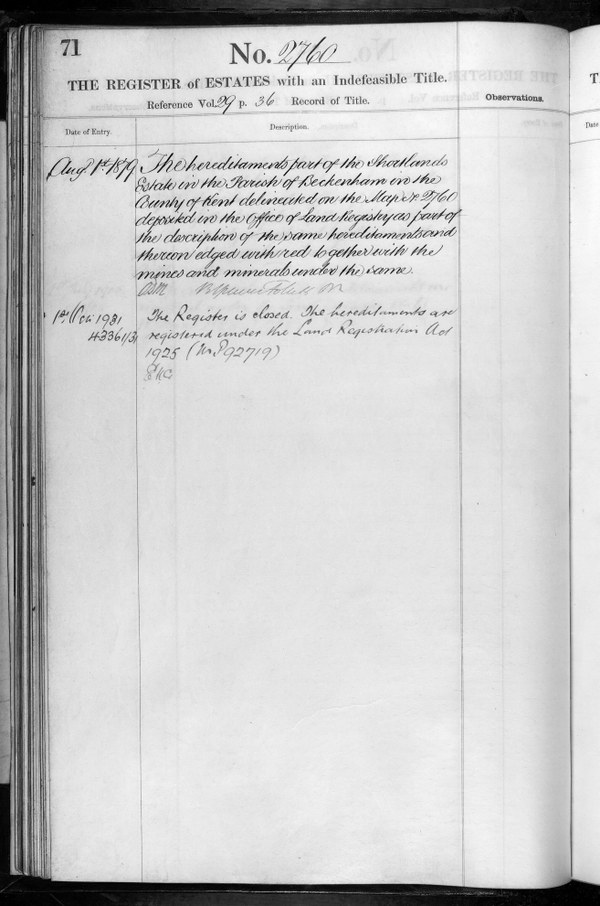 71
No. 2760
THE REGISTER of ESTATES with an Indefeasible Title.
Reference Vol. 29 p. 36 Record of Title.
Observations.
Date of Entry.
Description.
Augt. 1st. 1879
The hereditaments part of the Shortlands
Estate in the Parish of Beckenham in the
County of Kent delineated on the Map No. 2760
deposited in the Office of Land Registry as part of
the description of the same hereditaments and
thereon edged with red together with the
mines and minerals under the same.
1st Oct 1931
43361/31
The Register is closed. The hereditaments are
registered under the Land Registration Act
1925 (No. P92719)
T
Date